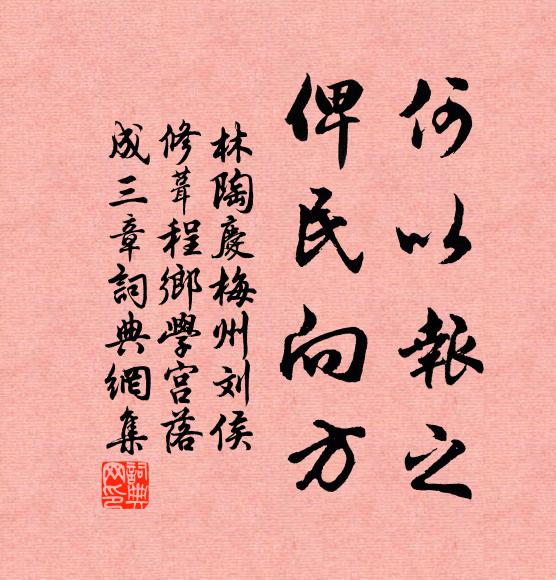 何以報之
俾民向方
林陶慶梅州刘侯
修葺程鄉學宮落
成三章詞典網集
詞典
网印